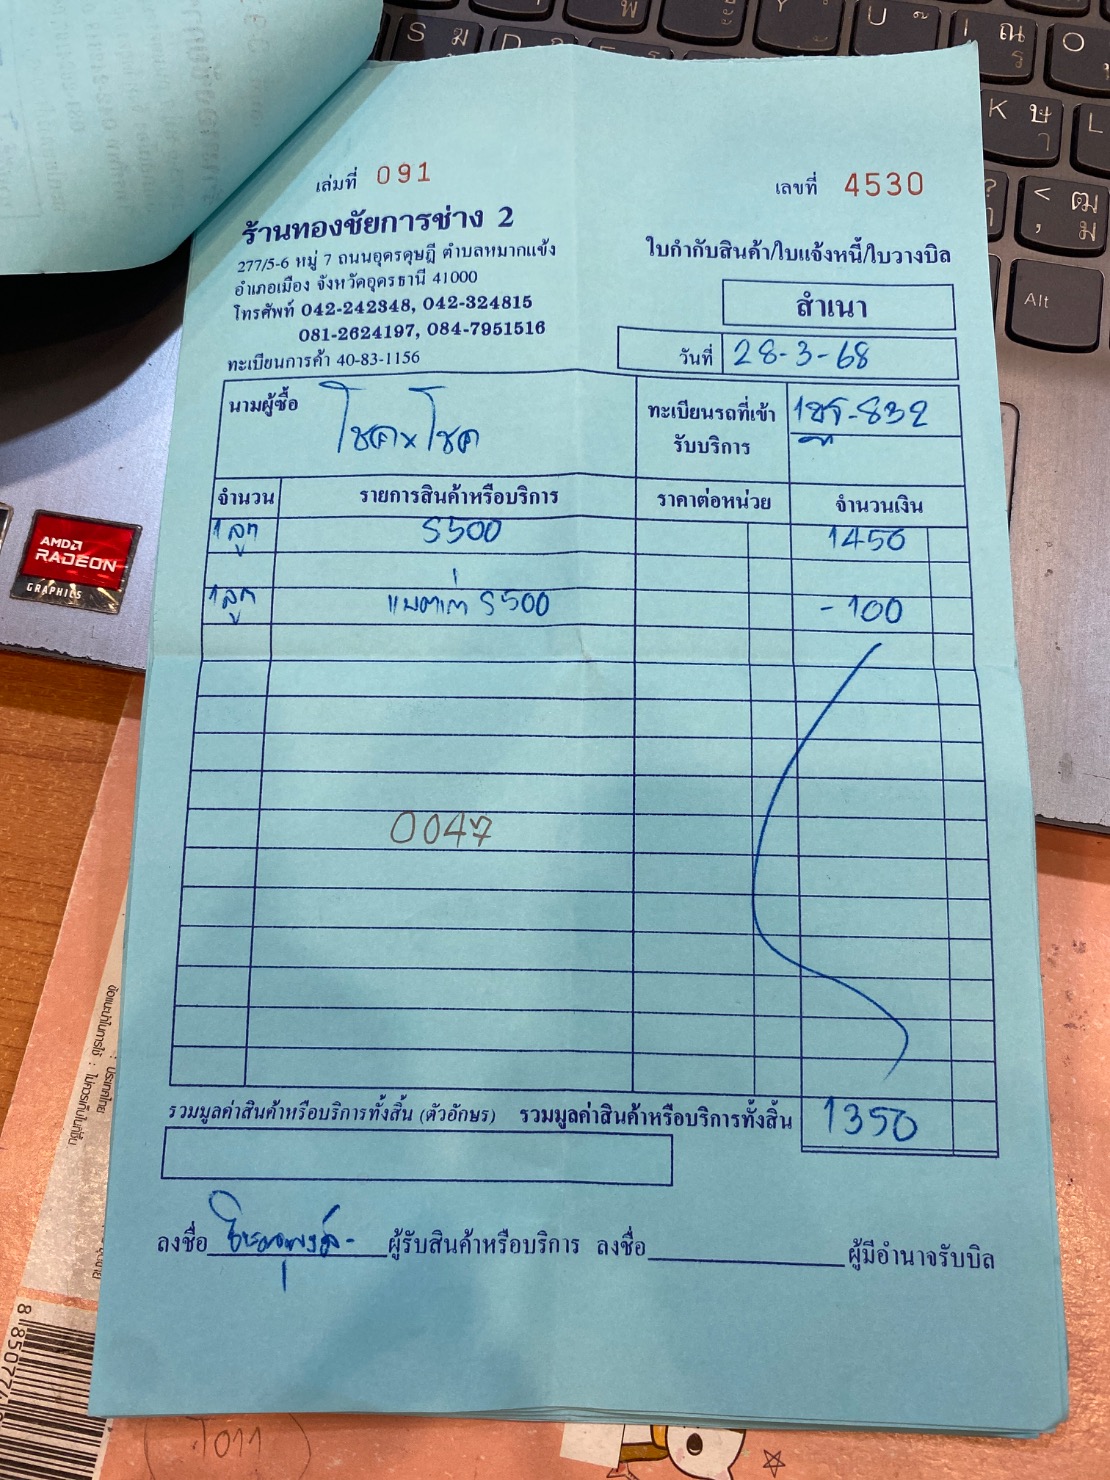 เล่มที่ 091
เลขที่ 4530
ร้านทองชัยการช่าง 2
277/5-6 หมู่ 7 ถนนอุดรดุษฎี ตำบลหมากแข้ง
อำเภอเมือง จังหวัดอุดรธานี 41000
โทรศัพท์ 042-242348, 042-324815
081-2624197, 084-7951516
ทะเบียนการค้า 40-83-1156
ใบกำกับสินค้า/ใบแจ้งหนี้/ใบวางบิล
สำเนา
วันที่ 28-3-68
นามผู้ซื้อ โชค x โชค
ทะเบียนรถที่เข้า
รับบริการ
832
จำนวน รายการสินค้าหรือบริการ ราคาต่อหน่วย จำนวนเงิน
1 ลูก S500 1450
1 ลูก แบตเก่า S500 -100
0047
รวมมูลค่าสินค้าหรือบริการทั้งสิ้น (ตัวอักษร) รวมมูลค่าสินค้าหรือบริการทั้งสิ้น 1350
ลงชื่อ ผู้รับสินค้าหรือบริการ ลงชื่อ ผู้มีอำนาจรับบิล
AMD
RADEON
GRAPHICS
S ม
U
K ษ า
L
O
Alt
1011